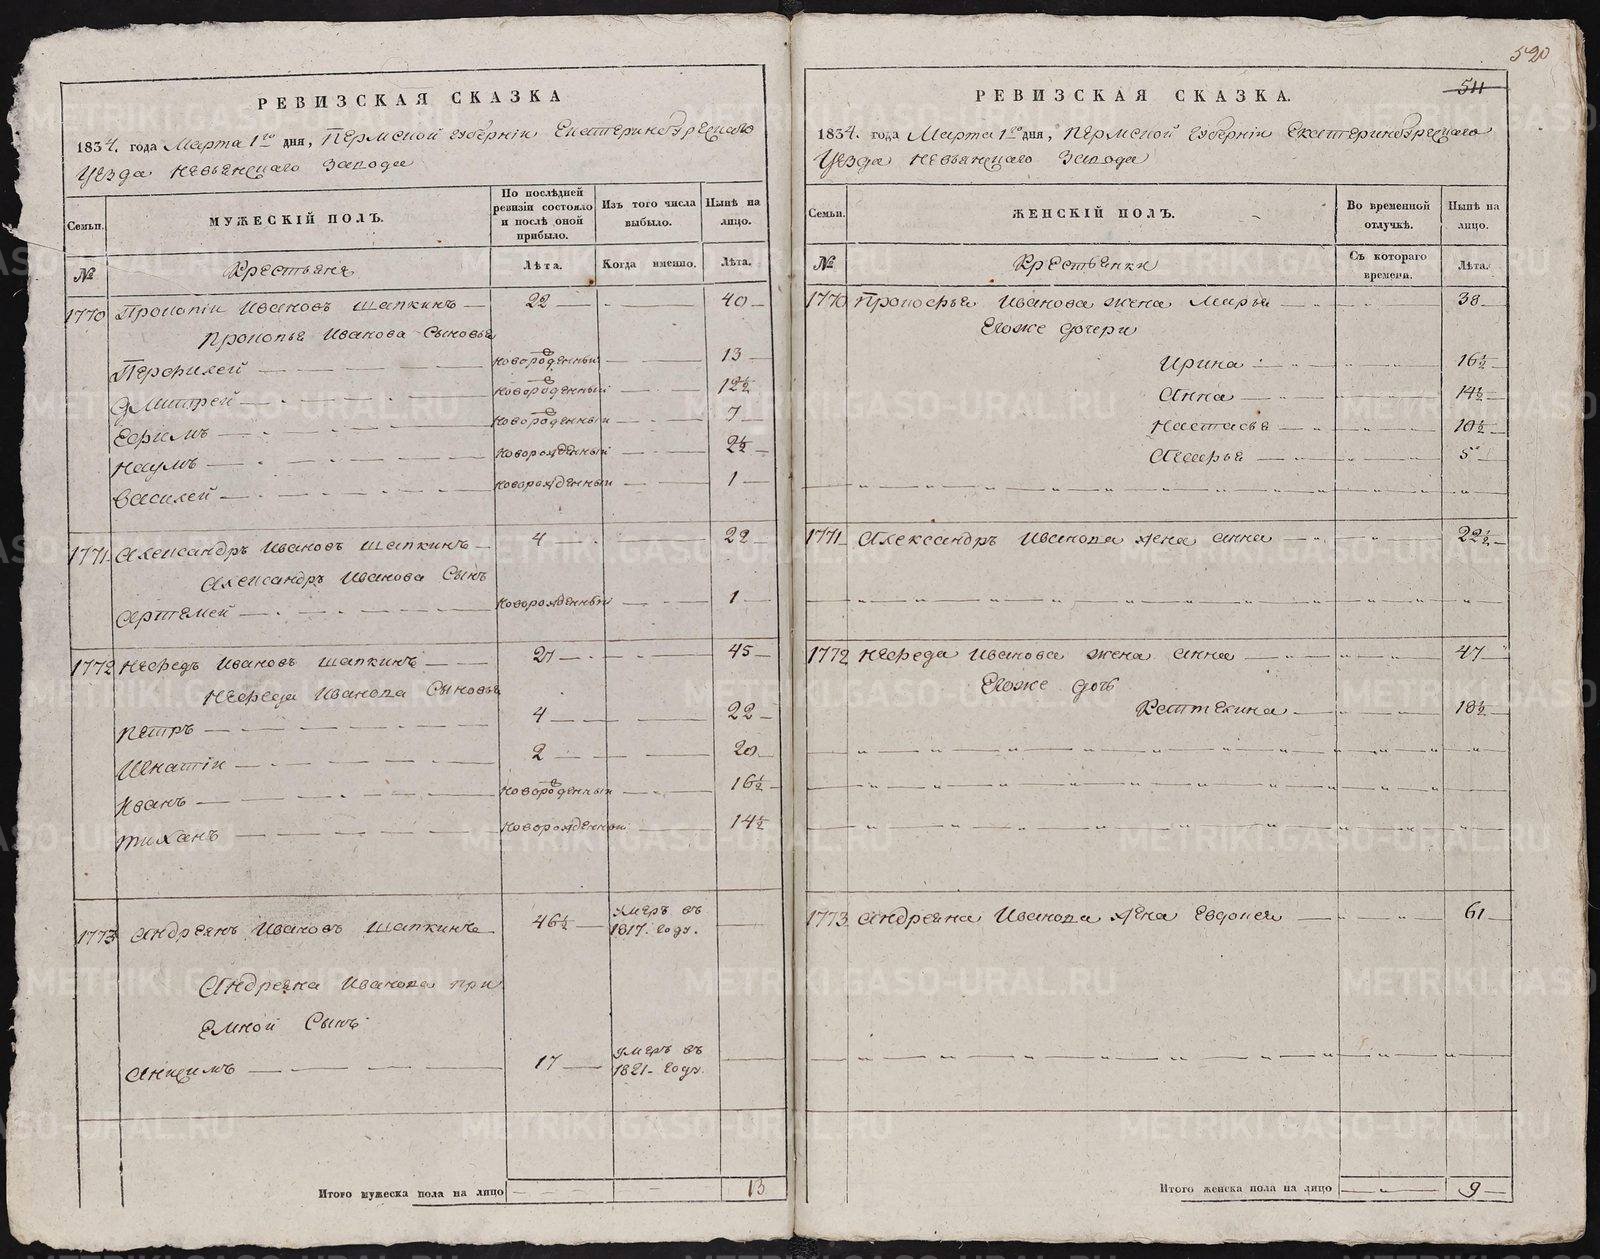 520
РЕВИЗСКАЯ СКАЗКА
1834. года Марта 1го дня, Пермской губерніи Екатеринбургскаго
уезда Невьянскаго Завода
Семьи.
МУЖЕСКІЙ ПОЛЪ.
По послѣдней ревизіи состояло и послѣ оной прибыло.
Изъ того числа выбыло.
Нынѣ на лицо.
№
Крестьяне
Лѣта.
Когда именно.
Лѣта.
1770 Прокопіи Ивановъ Шапкинъ 22 40
Прокопья Иванова Сыновья
Перфилей новорожденный 13
Дмитрей новорожденный 12½
Ефимъ новорожденный 7
Наумъ новорожденный 2½
Василей новорожденный 1
1771 Александръ Ивановъ Шапкинъ 4 22
Александръ Иванова Сынъ
Артемей новорожденный 1
1772 Нефедъ Ивановъ Шапкинъ 27 45
Нефеда Иванова Сыновья
Петръ 4 22
Игнатіи 2 20
Иванъ новорожденный 16½
Тиханъ новорожденный 14½
1773 Андреянъ Ивановъ Шапкинъ 46½ умеръ въ 1817. году.
Андреяна Иванова при
емной Сынъ
17 умеръ въ 1821. году.
Итого мужеска пола на лицо 13
511
РЕВИЗСКАЯ СКАЗКА.
1834. года Марта 1го дня, Пермской губерніи Екатеринбургскаго
уезда Невьянскаго Завода
Семьи.
ЖЕНСКІЙ ПОЛЪ.
Во временной отлучкѣ.
Нынѣ на лицо.
№
Крестьянки
Съ котораго времени.
Лѣта.
1770 Прокофья Иванова жена Марья 38
Егоже дочери
Ирина 16½
Анна 14½
Настасья 10½
5
1771 Александръ Иванова жена Анна 22½
1772 Нефеда Иванова жена Анна 47
Егоже дочь
Кеттекина 18½
1773 Андреяна Иванова жена Евдокея 61
Итого женска пола на лицо 9
METRIKI.GASO-URAL.RU